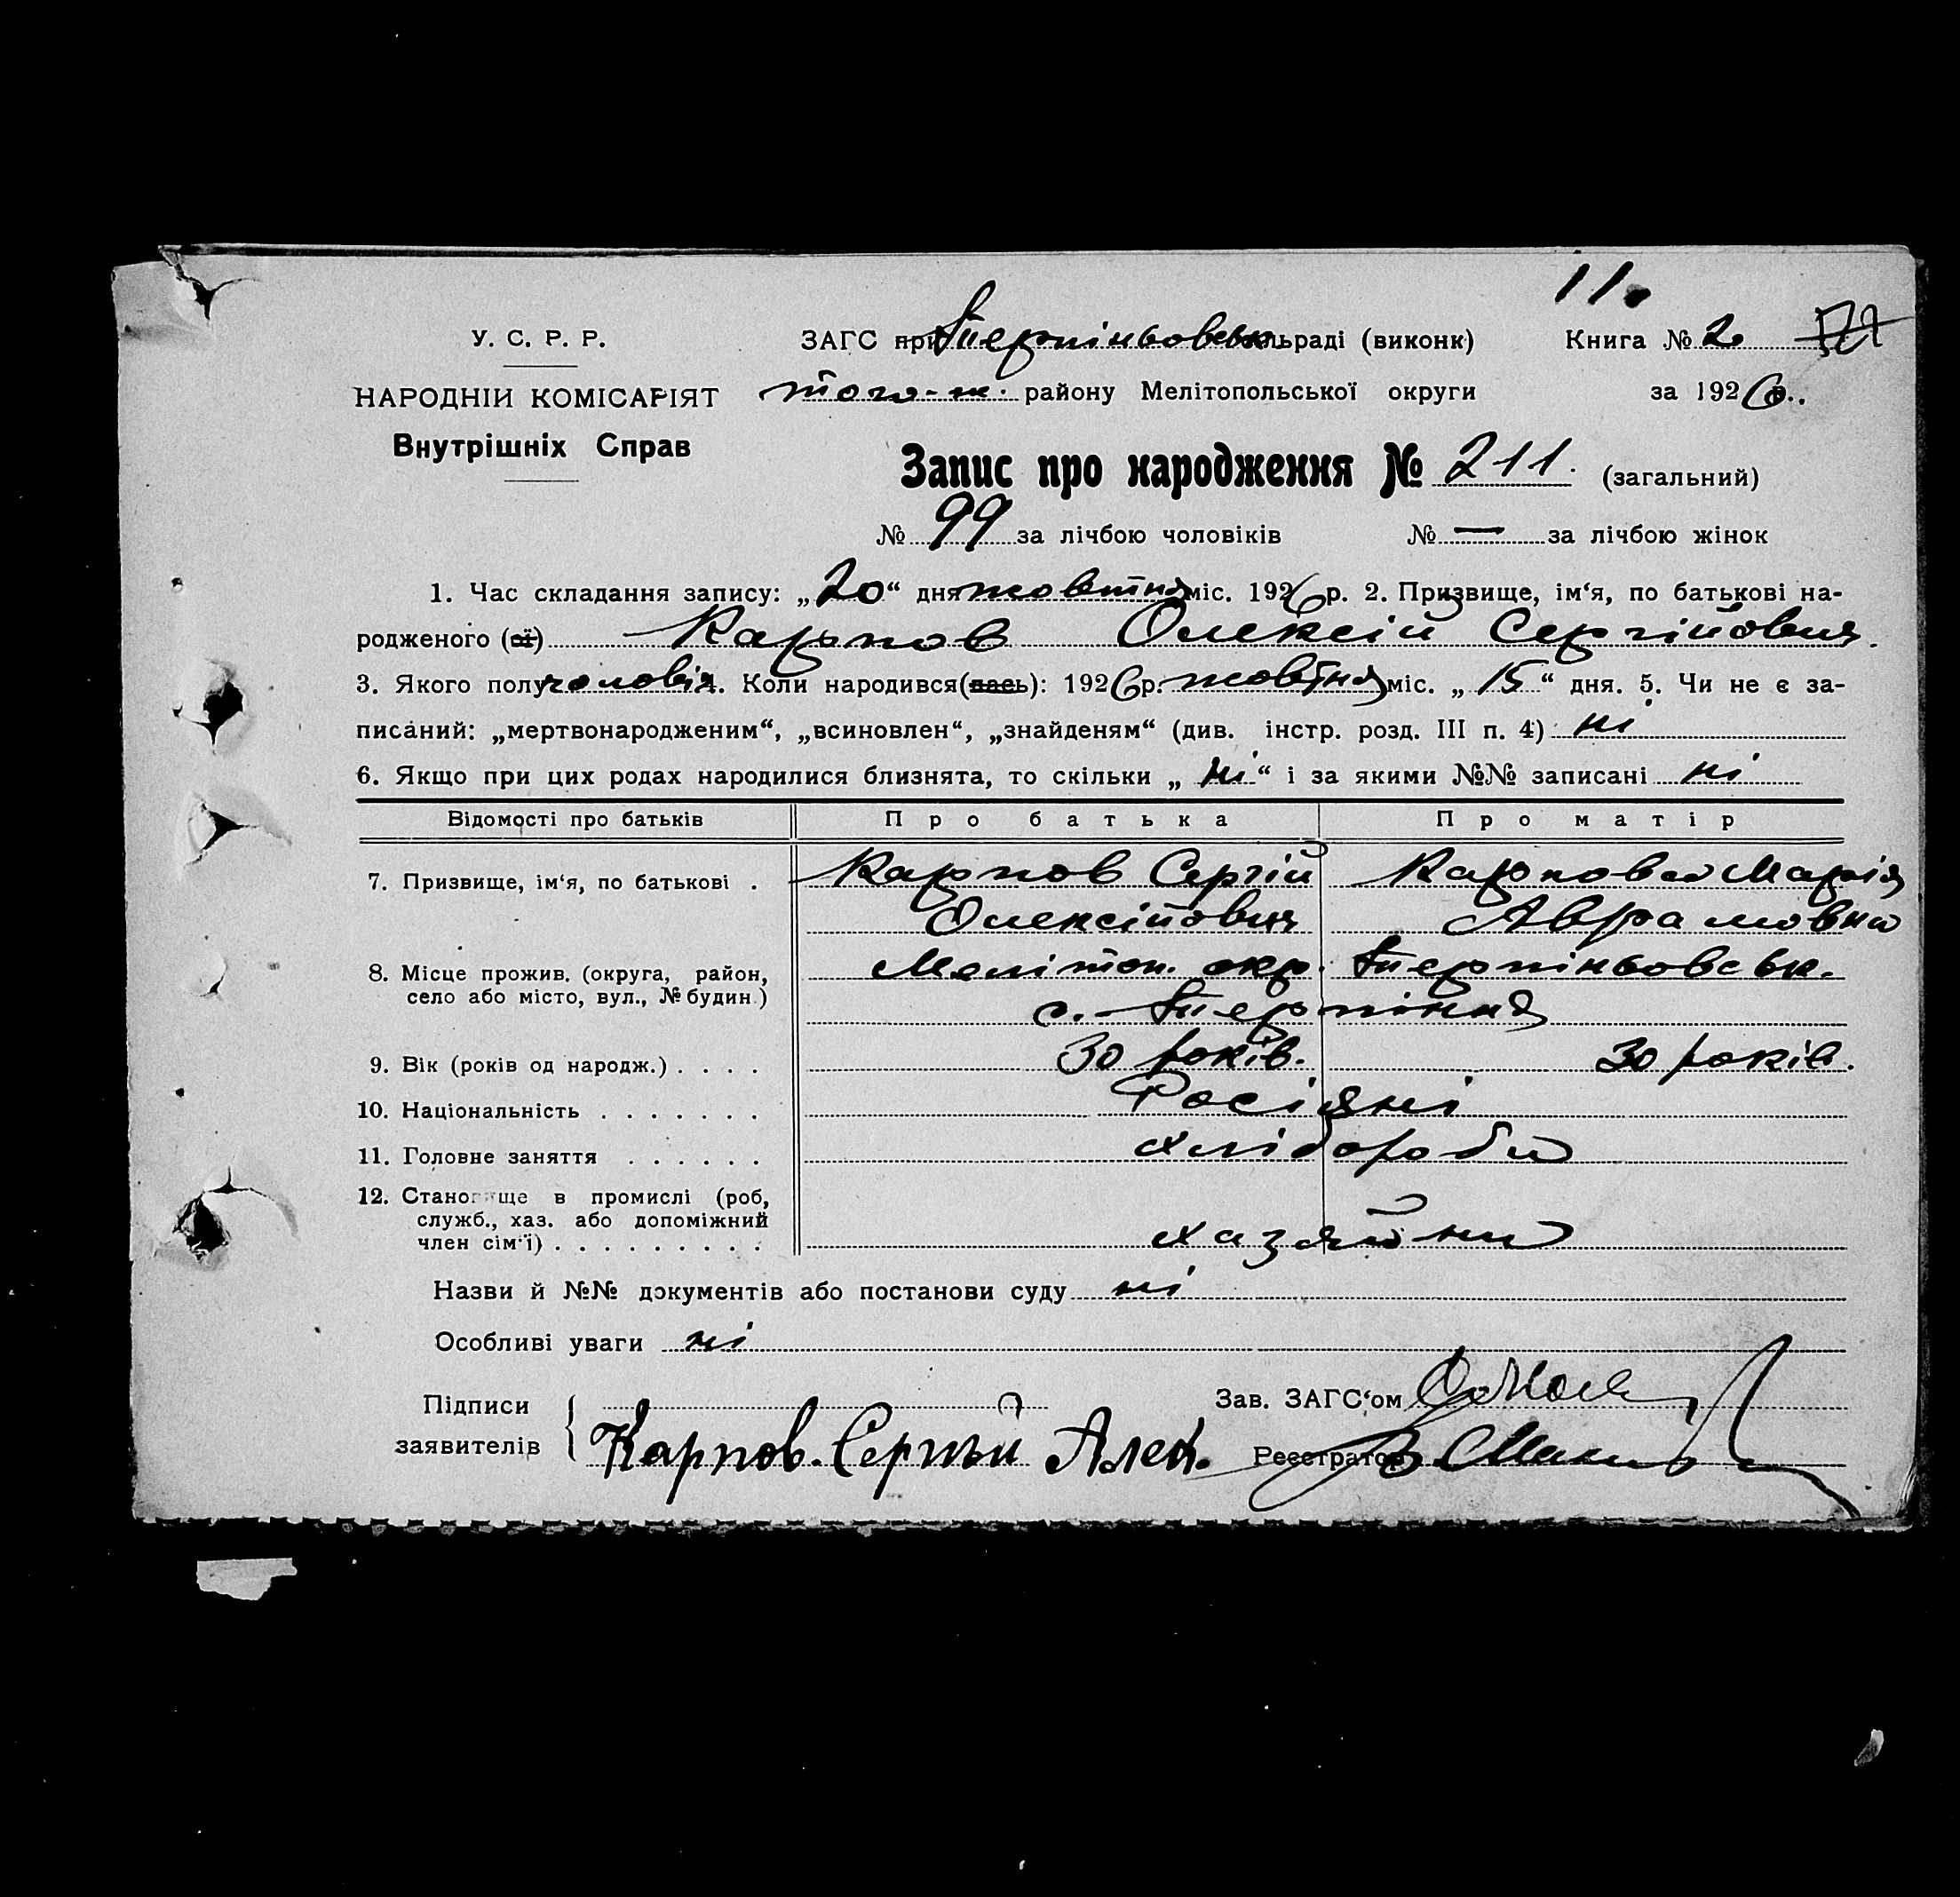 11.
У. С. Р. Р.
ЗАГС при Терпіньовськ. льраді (виконк) Книга № 2
НАРОДНІЙ КОМІСАРІЯТ
того-ж. району Мелітопольської округи за 1926 р.
Внутрішніх Справ
Запис про народження № 211. (загальний)
№ 99 за лічбою чоловіків № — за лічбою жінок
1. Час складання запису: „20“ дня жовтня міс. 1926 р. 2. Призвище, ім‘я, по батькові на-
родженого (ої) Карпов Олексій Сергійович.
3. Якого полу чоловіч. 4. Коли народився(лась): 1926 р. жовтня міс. „15“ дня. 5. Чи не є за-
писаний: „мертвонародженим“, „всиновлен“, „знайденям“ (див. інстр. розд. III п. 4) ні
6. Якщо при цих родах народилися близнята, то скільки „ні“ і за якими №№ записані ні
Відомості про батьків Про батька Про матір
7. Призвище, ім‘я, по батькові . Карпов Сергій Карпова Марія
Олексійович Аврамовна
8. Місце прожив. (округа, район, Меліт
оп. окр. Терпіньовськ.
село або місто, вул., № будин.) с. Терпіння
9. Вік (років од народж.) . . . . 30 років. 30 років.
10. Національність . . . . . . . Росіяні
11. Головне заняття . . . . . . хлібороби
12. Становище в промислі (роб,
служб., хаз. або допоміжний
член сім‘ї) . . . . . . . . . хазяйни
Назви й №№ документів або постанови суду ні
Особливі уваги ні
Підписи Зав. ЗАГС‘ом
заявителів Карпов. Сергѣй Алек. Реєстратор